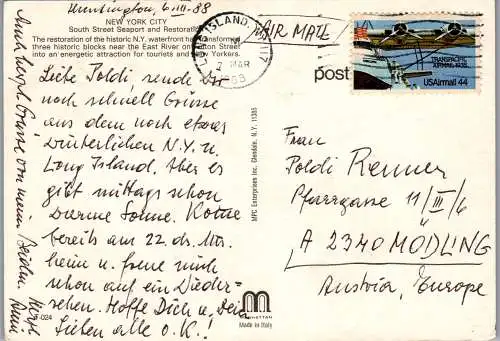 Huntington, 6.III.88
NEW YORK CITY
South Street Seaport and Restoration
The restoration of the historic N.Y. waterfront has transformed
three historic blocks near the East River on Fulton Street
into an energetic attraction for tourists and New Yorkers.
Liebe Poldi, sende Dir
noch schnell Grüsse
aus dem noch etwas
winterlichen N.Y. u.
Long Island. Aber es
gibt mittags schon
warme Sonne. Komme
bereits am 22. ds. Mts.
heim u. freue mich
schon auf ein Wieder-
sehen. Hoffe Dich u. Deine
Lieben alle o.K.!
Auch herzl. Grüsse von mein Beiden.
Herzl.
-024
MPC Enterprises Inc. Glendale, N.Y. 11385
m
MANHATTAN
Made in Italy
LONG ISLAND, 117
MAR
AIR MAIL
post
TRANSPACIFIC
AIRMAIL 1935
USAirmail 44
Frau
Poldi Renner
Pfarrgasse 11/III/6
A 2340 MÖDLING
Austria, Europe